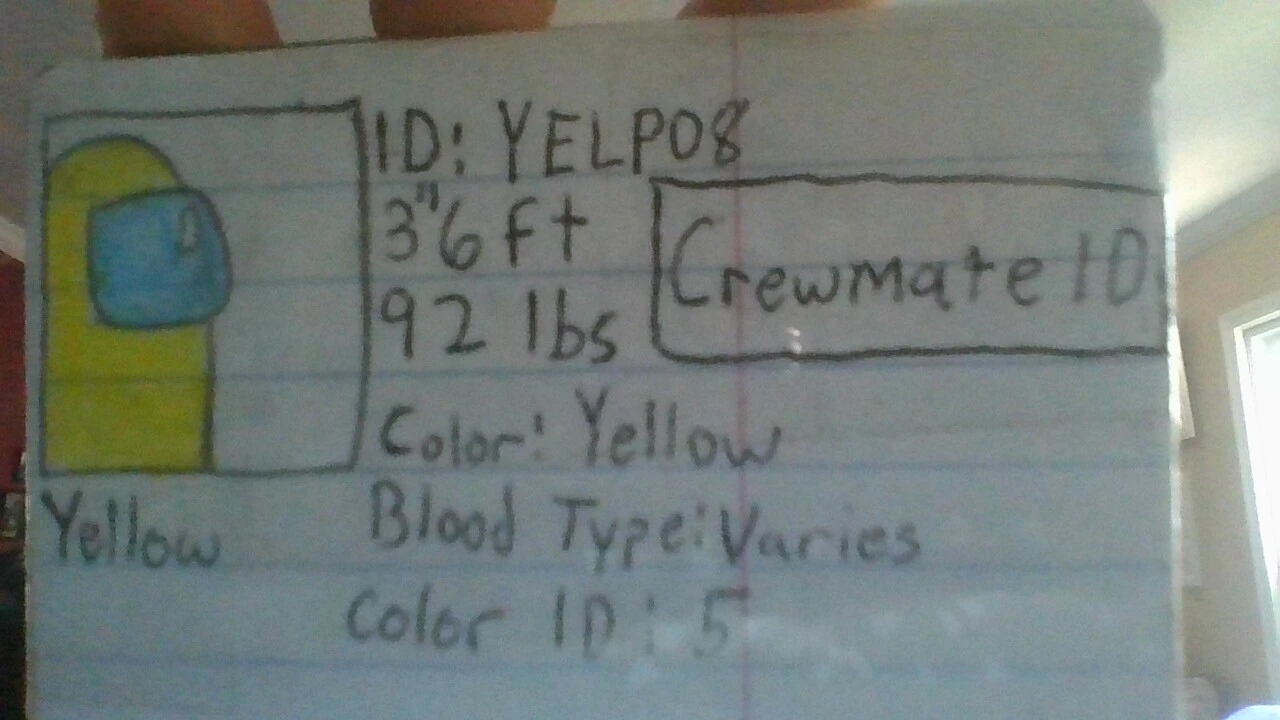 ID: YELP08
3"6 ft
92 lbs
Crewmate ID
Color: Yellow
Yellow
Blood Type: Varies
Color ID: 5